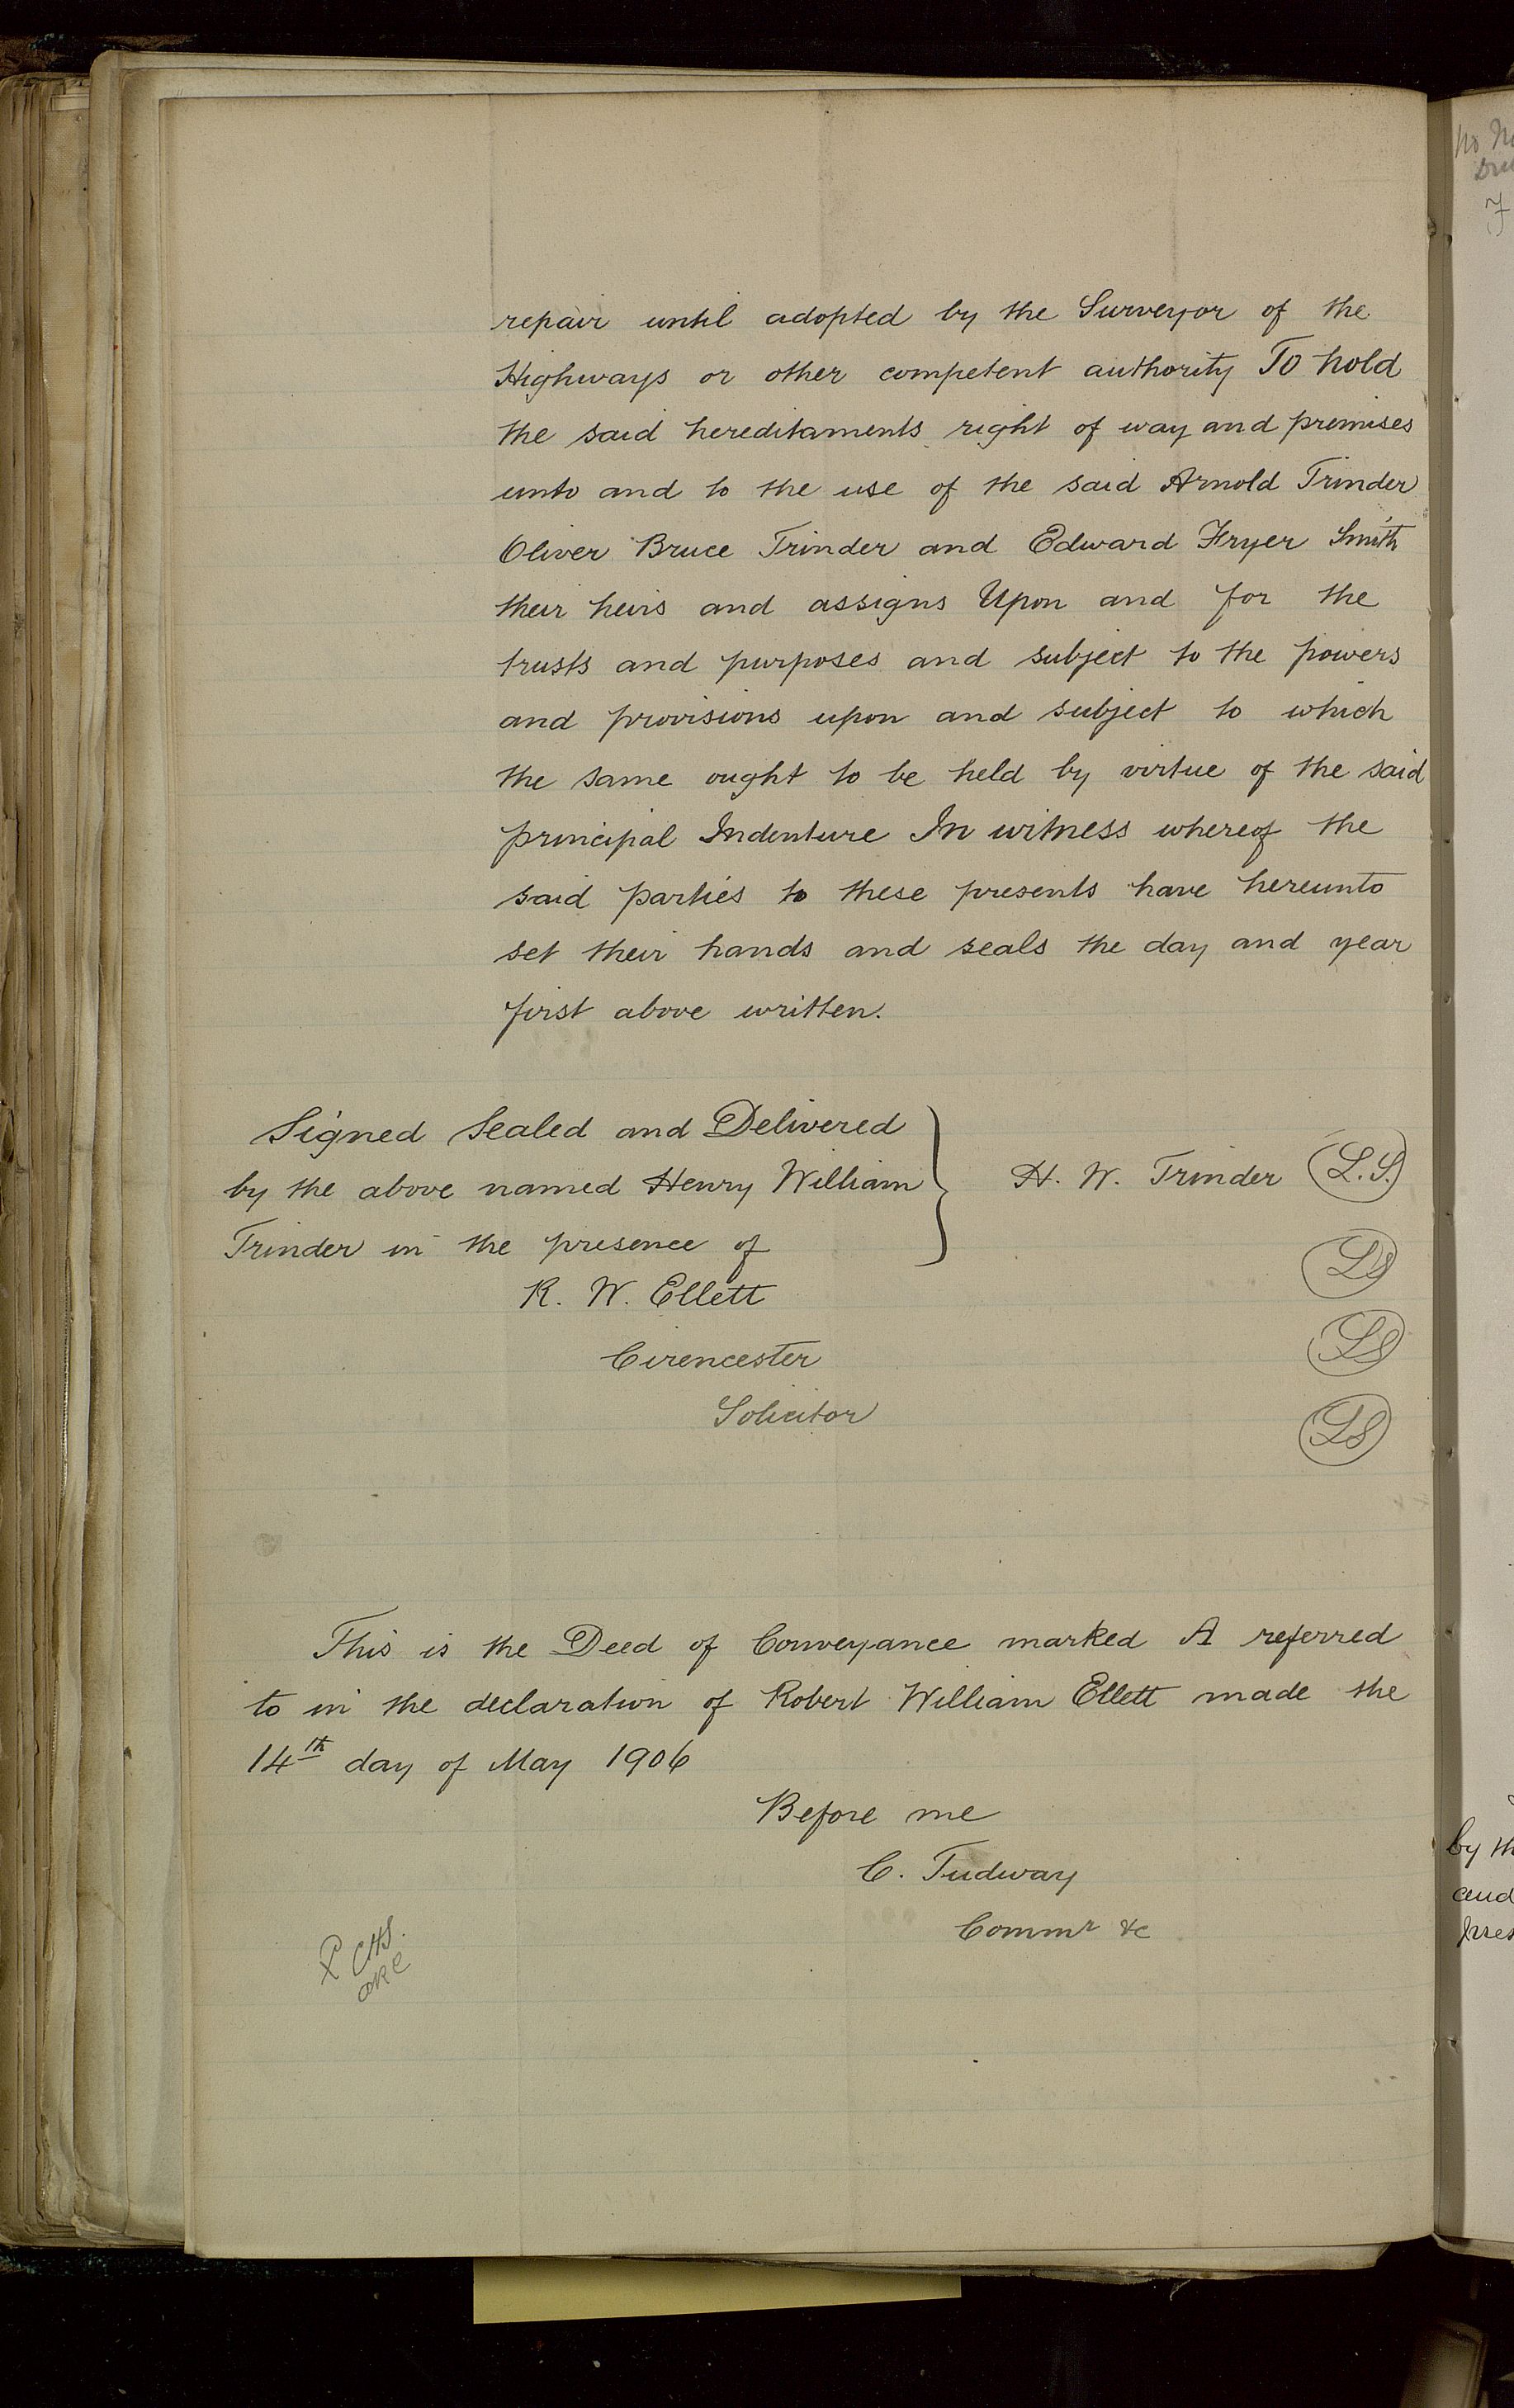 repair until adopted by the Surveyor of the
Highways or other competent authority To hold
the said hereditaments right of way and premises
unto and to the use of the said Arnold Trinder
Oliver Bruce Trinder and Edward Fryer Smith
their heirs and assigns Upon and for the
trusts and purposes and subject to the powers
and provisions upon and subject to which
the same ought to be held by virtue of the said
principal Indenture In witness whereof the
said parties to these presents have hereunto
set their hands and seals the day and year
first above written.
Signed Sealed and Delivered
by the above named Henry William
Trinder in the presence of
H. W. Trinder L.S.
LS
LS
LS
R. W. Ellett
Cirencester
Solicitor
This is the Deed of Conveyance marked A referred
to in the declaration of Robert William Ellett made the
14th day of May 1906
Before me
C. Tudway
Commr &c
by th
and